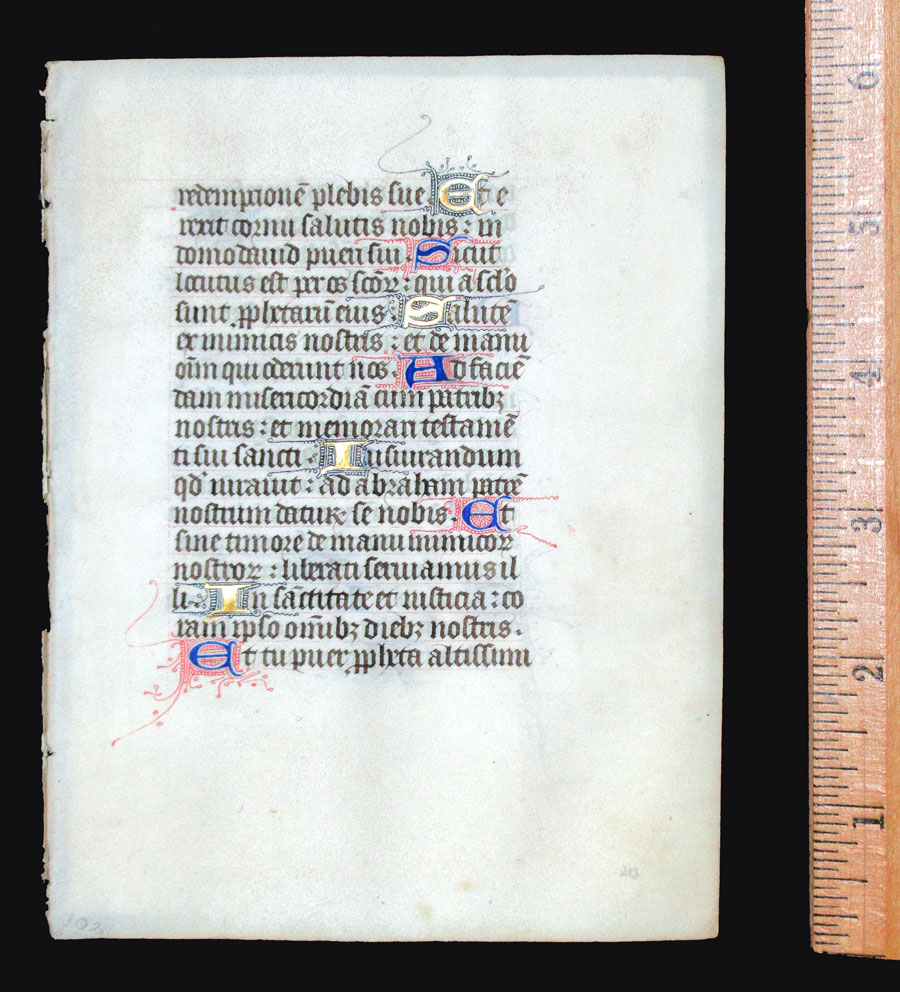 redemptionē plebis sue Et e
rexit cornu salutis nobis : in
domo dauid pueri sui . Sicut
locutus est per os scōꝝ : qui a sclo
sunt ꝓphetarū eius . Salutē
ex inimicis nostris : et de manu
oīm qui oderunt nos . Ad facie
dam misericordiā cum patribꝫ
nostris : et memorari testamē
ti sui sancti . Iusiurandum
qđ iurauit : ad abraham patrē
nostrum daturꝝ se nobis . Et
sine timore de manu inimicoꝝ
nostroꝝ : liberati seruiamus il
li . In sāctitate et iusticia : co
ram ipso omībꝫ diebꝫ nostris .
Et tu puer ꝓpheta altissimi
213
102
6
5
4
3
2
1